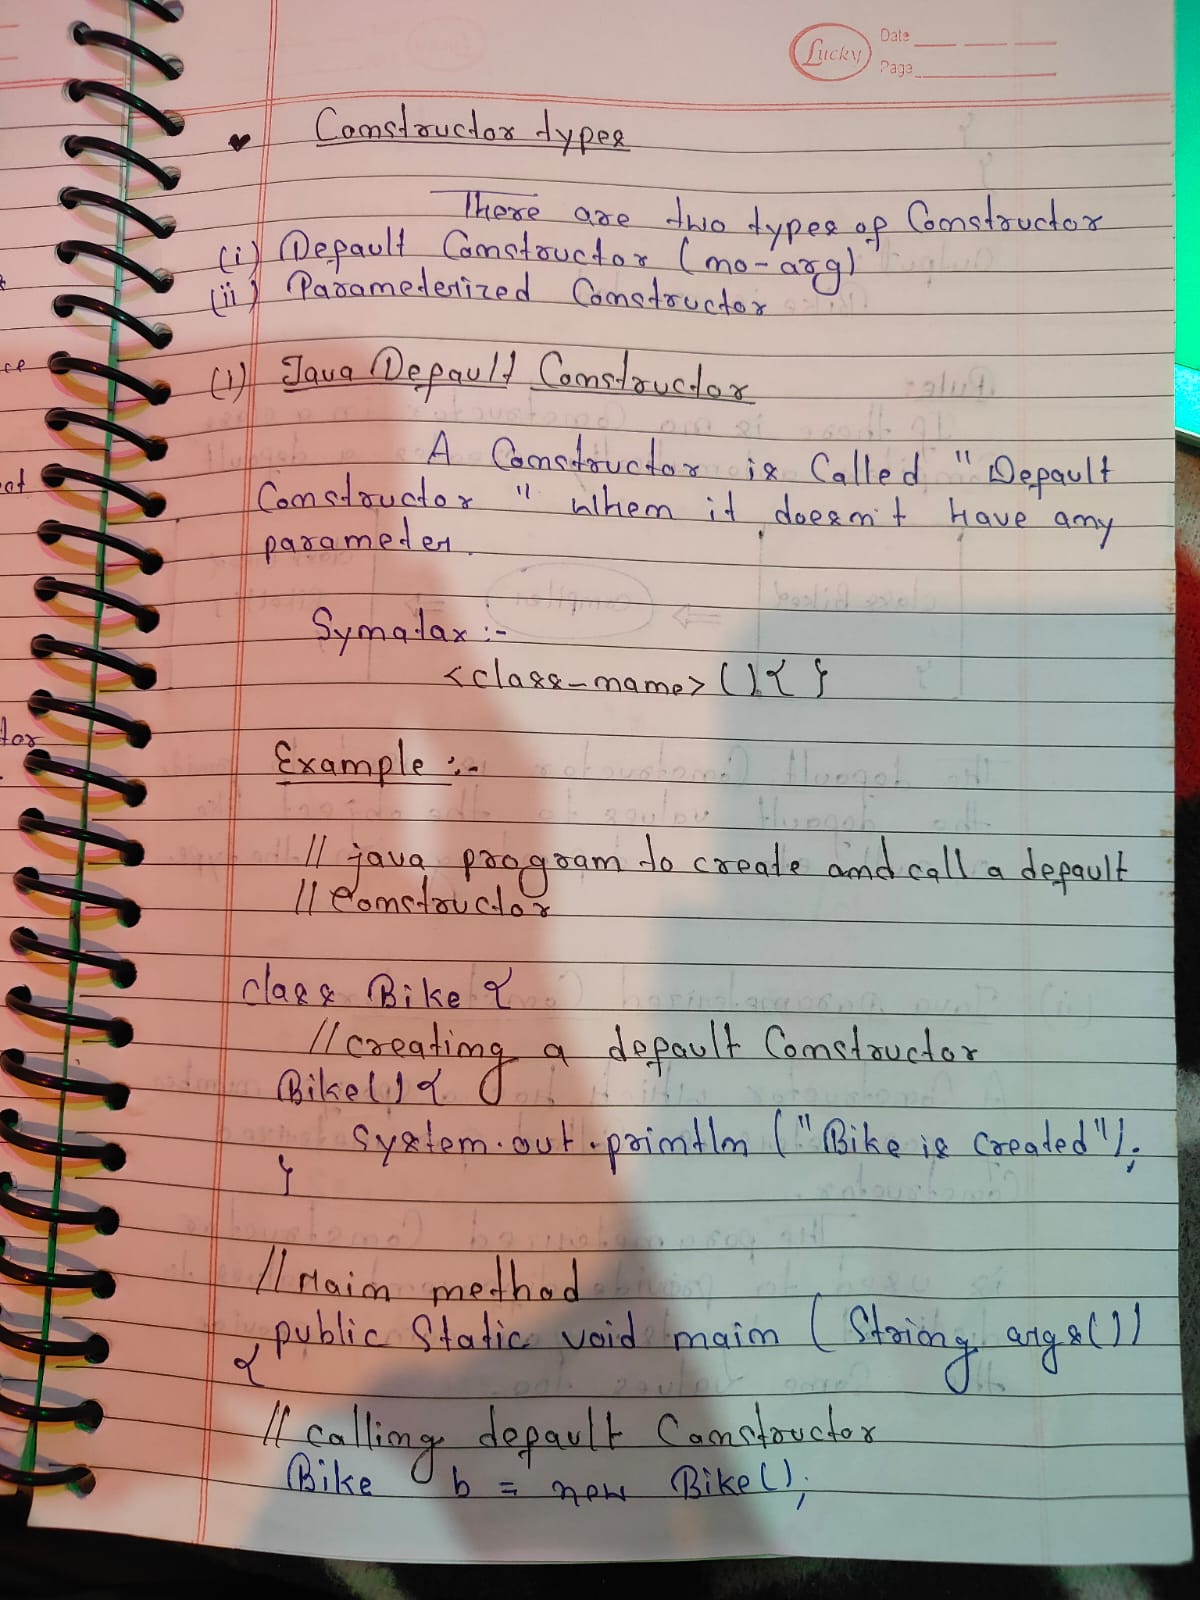 Lucky
Date
Page
Constructor types
There are two types of Constructor
(i) Default Constructor (no-arg)
(ii) Parameterized Constructor
(1) Java Default Constructor
A Constructor is Called "Default
Constructor" when it doesn't have any
parameter.
Synatax :-
<class-name>(){ }
Example :-
// java program to create and call a default
// Constructor
class Bike {
//creating a default Constructor
Bike() {
System.out.println ("Bike is Created");
}
//Main method
public Static void main (String args())
{
// Calling default Constructor
Bike b = new Bike();